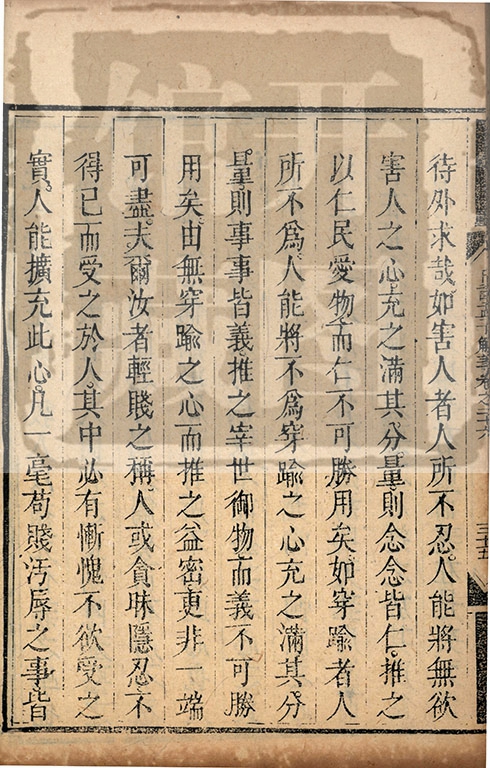 待外求哉如害人者人所不忍人能將無欲
害人之心充之滿其分量則念念皆仁推之
以仁民愛物而仁不可勝用矣如穿踰者人
所不為人能將不為穿踰之心充之滿其分
量則事事皆義推之宰世御物而義不可勝
用矣由無穿踰之心而推之益密更非一端
可盡夫爾汝者輕賤之稱人或貪昧隱忍不
得已而受之於人其中必有慚愧不欲受之
實人能擴充此心凡一毫苟賤汚辱之事皆